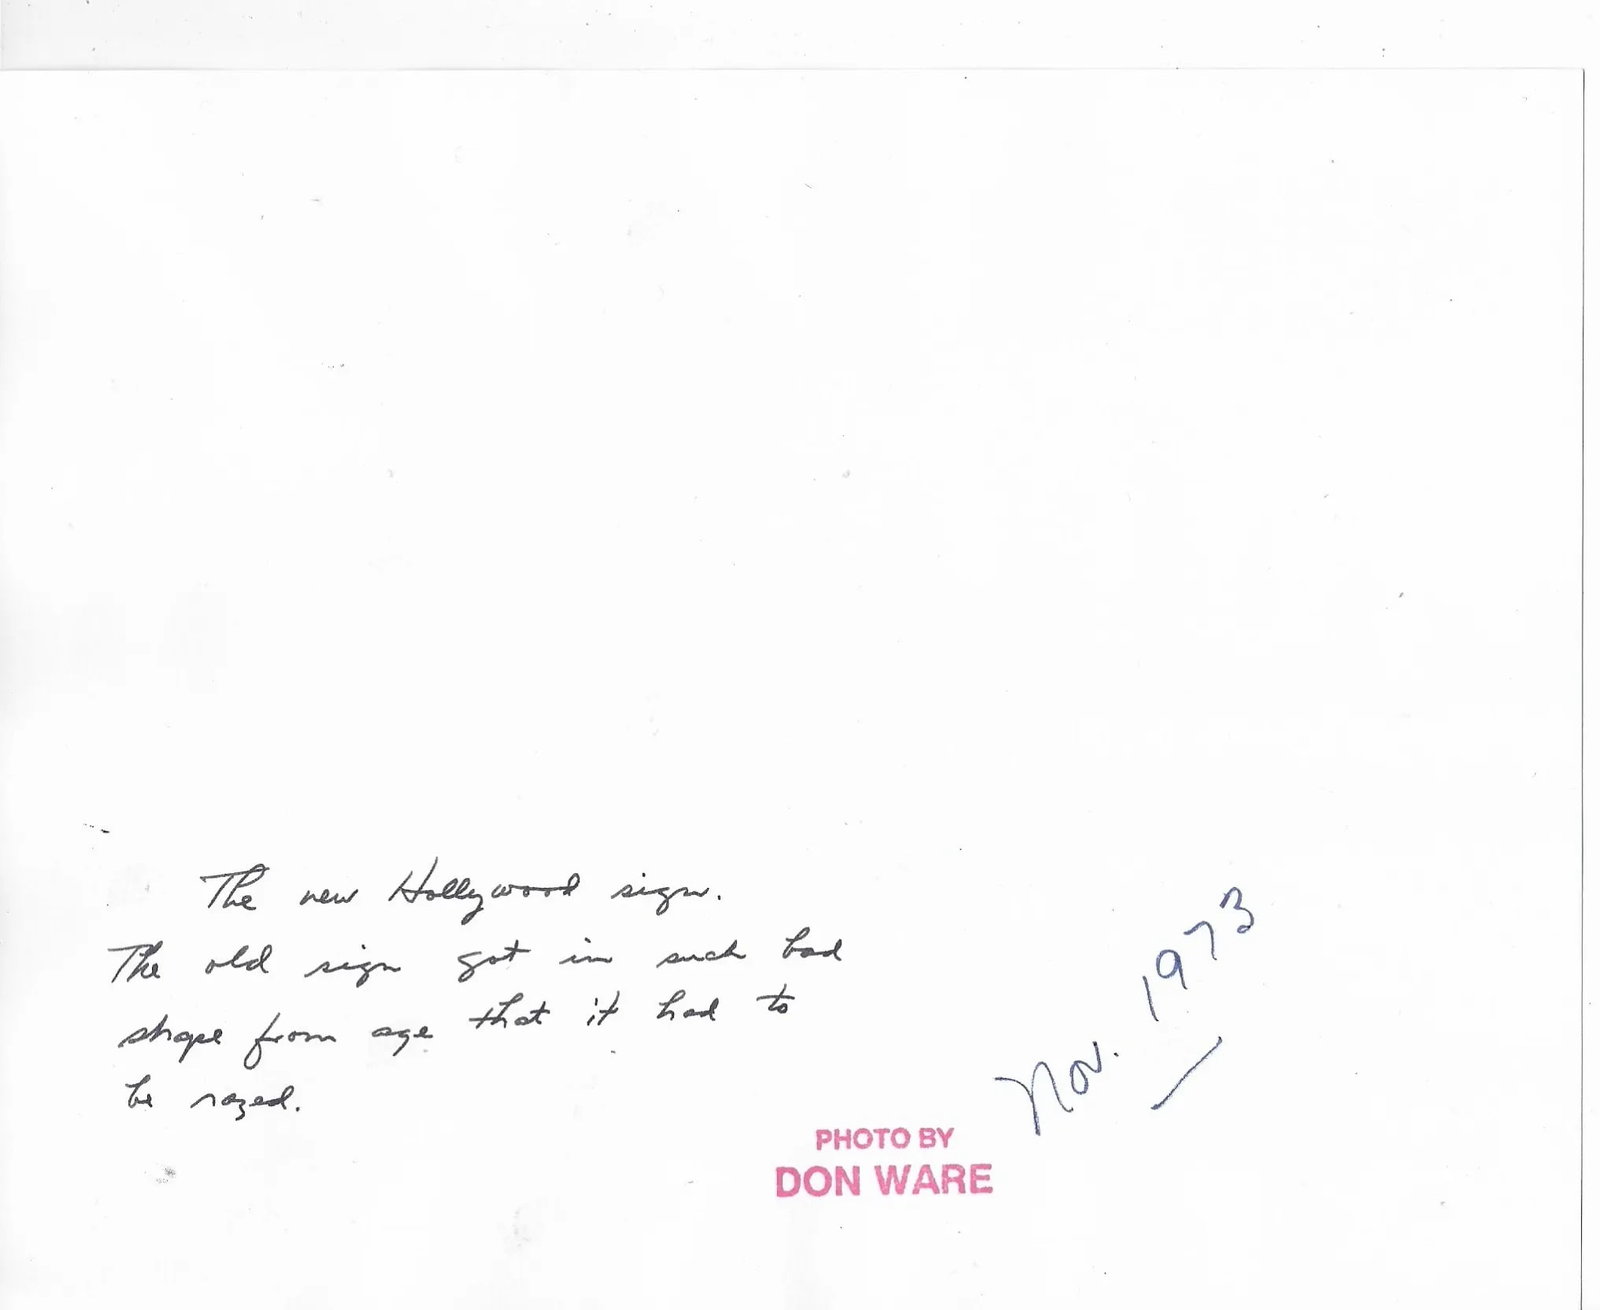 The new Hollywood sign.
The old sign got in such bad
shape from age that it had to
be razed.
Nov. 1973
PHOTO BY
DON WARE